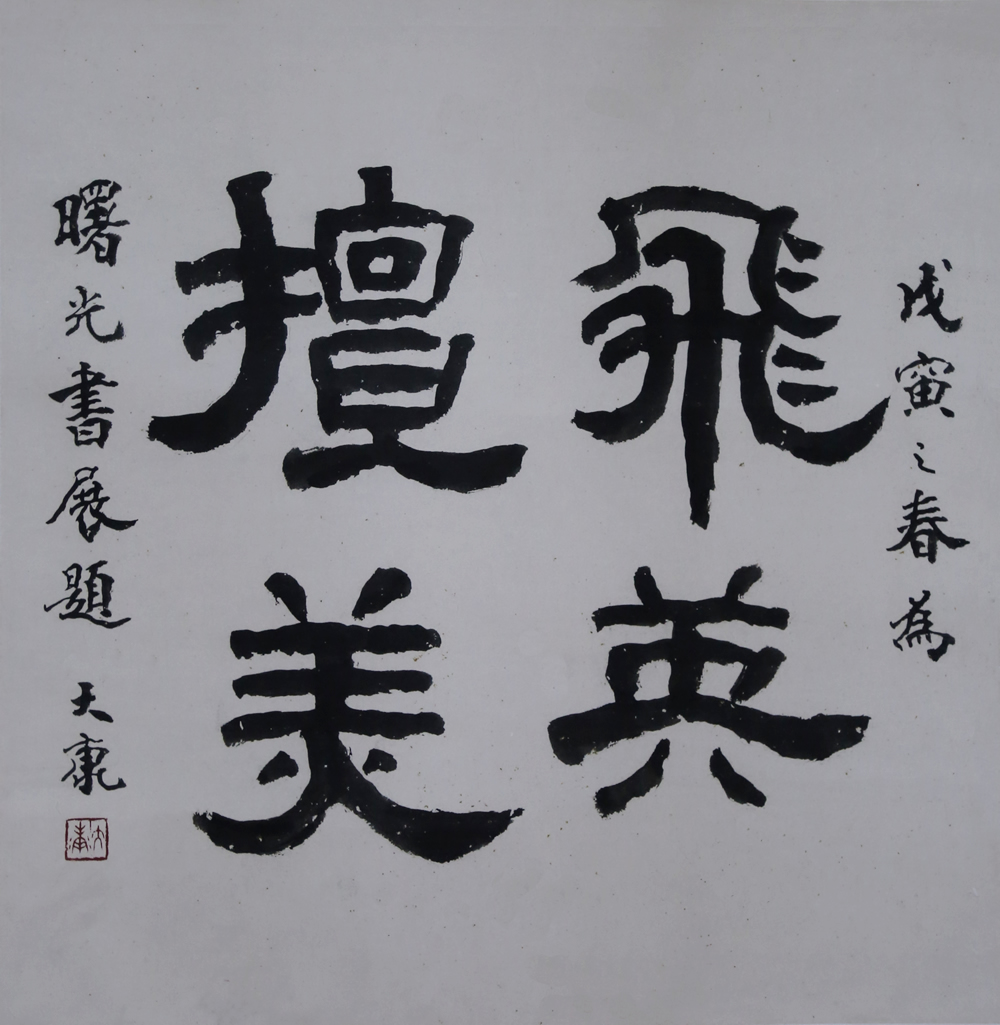 戊寅之春為
飛英
擅美
曙光書展題 天康
天康